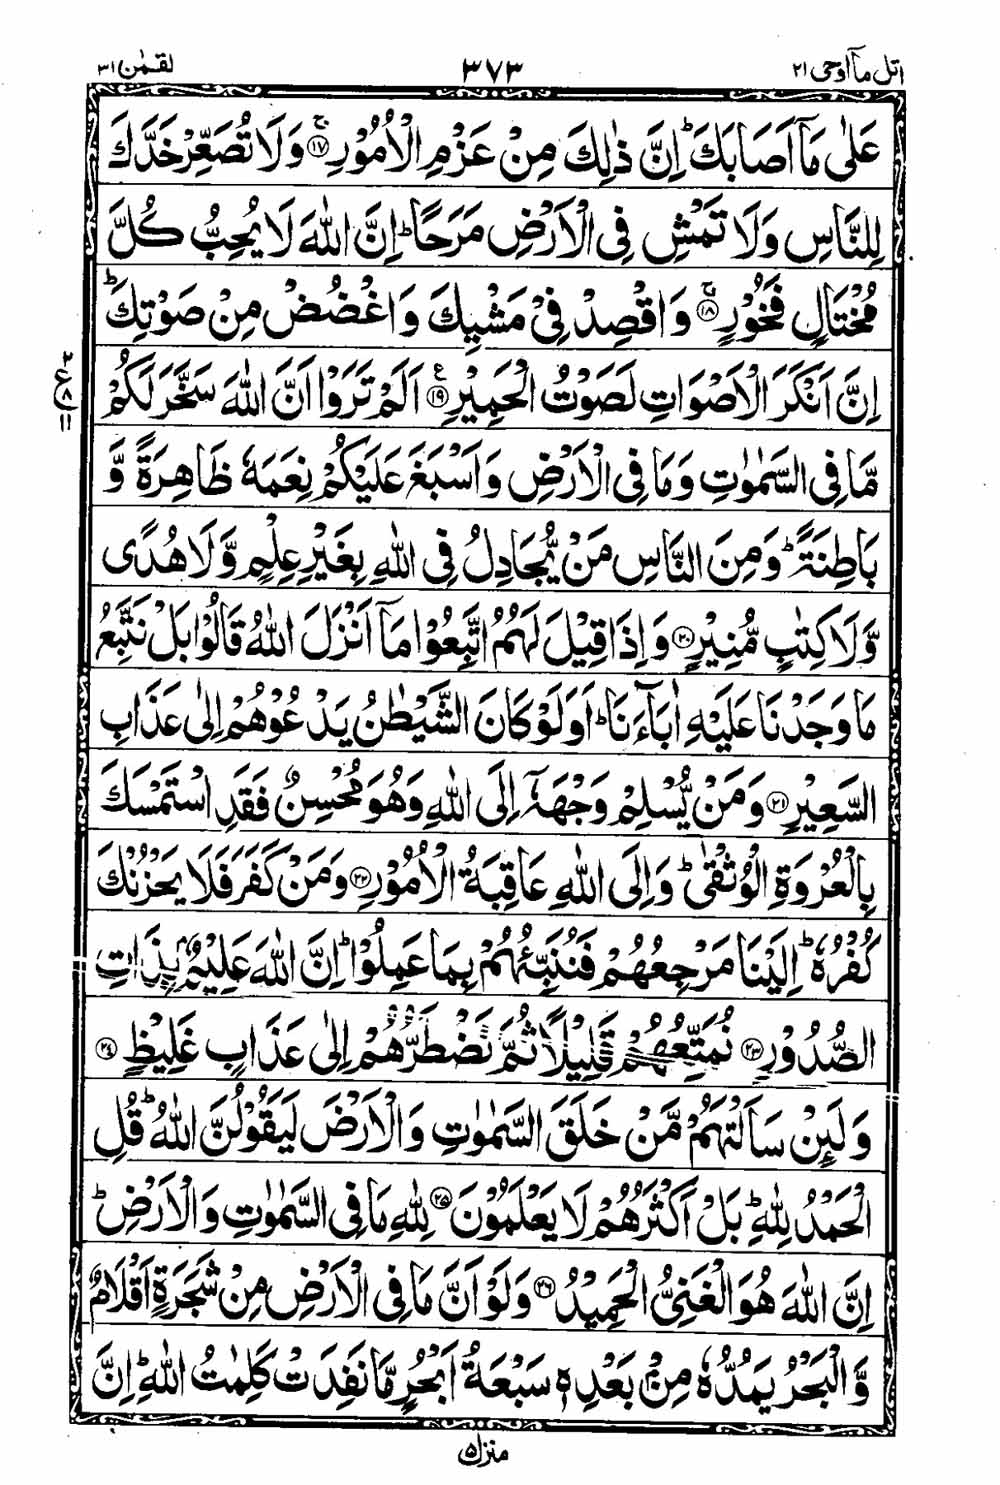 اتل مآ اوحی ۲۱ ۳۷۳ لقمٰن ۳۱
عَلٰى مَاۤ اَصَابَكَؕ اِنَّ ذٰلِكَ مِنْ عَزْمِ الْاُمُوْرِۚ‏﴿۱۷﴾ وَلَا تُصَعِّرْ خَدَّكَ
لِلنَّاسِ وَلَا تَمْشِ فِى الْاَرْضِ مَرَحًاؕ اِنَّ اللّٰهَ لَا يُحِبُّ كُلَّ
مُخْتَالٍ فَخُوْرٍۚ‏﴿۱۸﴾ وَاقْصِدْ فِىْ مَشْيِكَ وَاغْضُضْ مِنْ صَوْتِكَؕ
اِنَّ اَنْكَرَ الْاَصْوَاتِ لَصَوْتُ الْحَمِيْرِ‏﴿۱۹﴾ اَلَمْ تَرَوْا اَنَّ اللّٰهَ سَخَّرَ لَكُمْ
۲
ع
۸
۱۱
مَّا فِى السَّمٰوٰتِ وَمَا فِى الْاَرْضِ وَاَسْبَغَ عَلَيْكُمْ نِعَمَهٗ ظَاهِرَةً وَّ
بَاطِنَةًؕ وَمِنَ النَّاسِ مَنْ يُّجَادِلُ فِى اللّٰهِ بِغَيْرِ عِلْمٍ وَّلَا هُدًى
وَّلَا كِتٰبٍ مُّنِيْرٍ‏﴿۲۰﴾ وَاِذَا قِيْلَ لَهُمُ اتَّبِعُوْا مَاۤ اَنْزَلَ اللّٰهُ قَالُوْا بَلْ نَتَّبِعُ
مَا وَجَدْنَا عَلَيْهِ اٰبَآءَنَاؕ اَوَلَوْ كَانَ الشَّيْطٰنُ يَدْعُوْهُمْ اِلٰى عَذَابِ
السَّعِيْرِ‏﴿۲۱﴾ وَمَنْ يُّسْلِمْ وَجْهَهٗۤ اِلَى اللّٰهِ وَهُوَ مُحْسِنٌ فَقَدِ اسْتَمْسَكَ
بِالْعُرْوَةِ الْوُثْقٰىؕ وَاِلَى اللّٰهِ عَاقِبَةُ الْاُمُوْرِ‏﴿۲۲﴾ وَمَنْ كَفَرَ فَلَا يَحْزُنْكَ
كُفْرُهٗؕ اِلَيْنَا مَرْجِعُهُمْ فَنُنَبِّئُهُمْ بِمَا عَمِلُوْاؕ اِنَّ اللّٰهَ عَلِيْمٌۢ بِذَاتِ
الصُّدُوْرِ‏﴿۲۳﴾ نُمَتِّعُهُمْ قَلِيْلًا ثُمَّ نَضْطَرُّهُمْ اِلٰى عَذَابٍ غَلِيْظٍ‏﴿۲۴﴾
وَلَئِنْ سَاَلْتَهُمْ مَّنْ خَلَقَ السَّمٰوٰتِ وَالْاَرْضَ لَيَقُوْلُنَّ اللّٰهُؕ قُلِ
الْحَمْدُ لِلّٰهِؕ بَلْ اَكْثَرُهُمْ لَا يَعْلَمُوْنَ‏﴿۲۵﴾ لِلّٰهِ مَا فِى السَّمٰوٰتِ وَالْاَرْضِؕ
اِنَّ اللّٰهَ هُوَ الْغَنِىُّ الْحَمِيْدُ‏﴿۲۶﴾ وَلَوْ اَنَّ مَا فِى الْاَرْضِ مِنْ شَجَرَةٍ اَقْلَامٌ
وَّالْبَحْرُ يَمُدُّهٗ مِنْۢ بَعْدِهٖ سَبْعَةُ اَبْحُرٍ مَّا نَفِدَتْ كَلِمٰتُ اللّٰهِؕ اِنَّ
منزل ۵